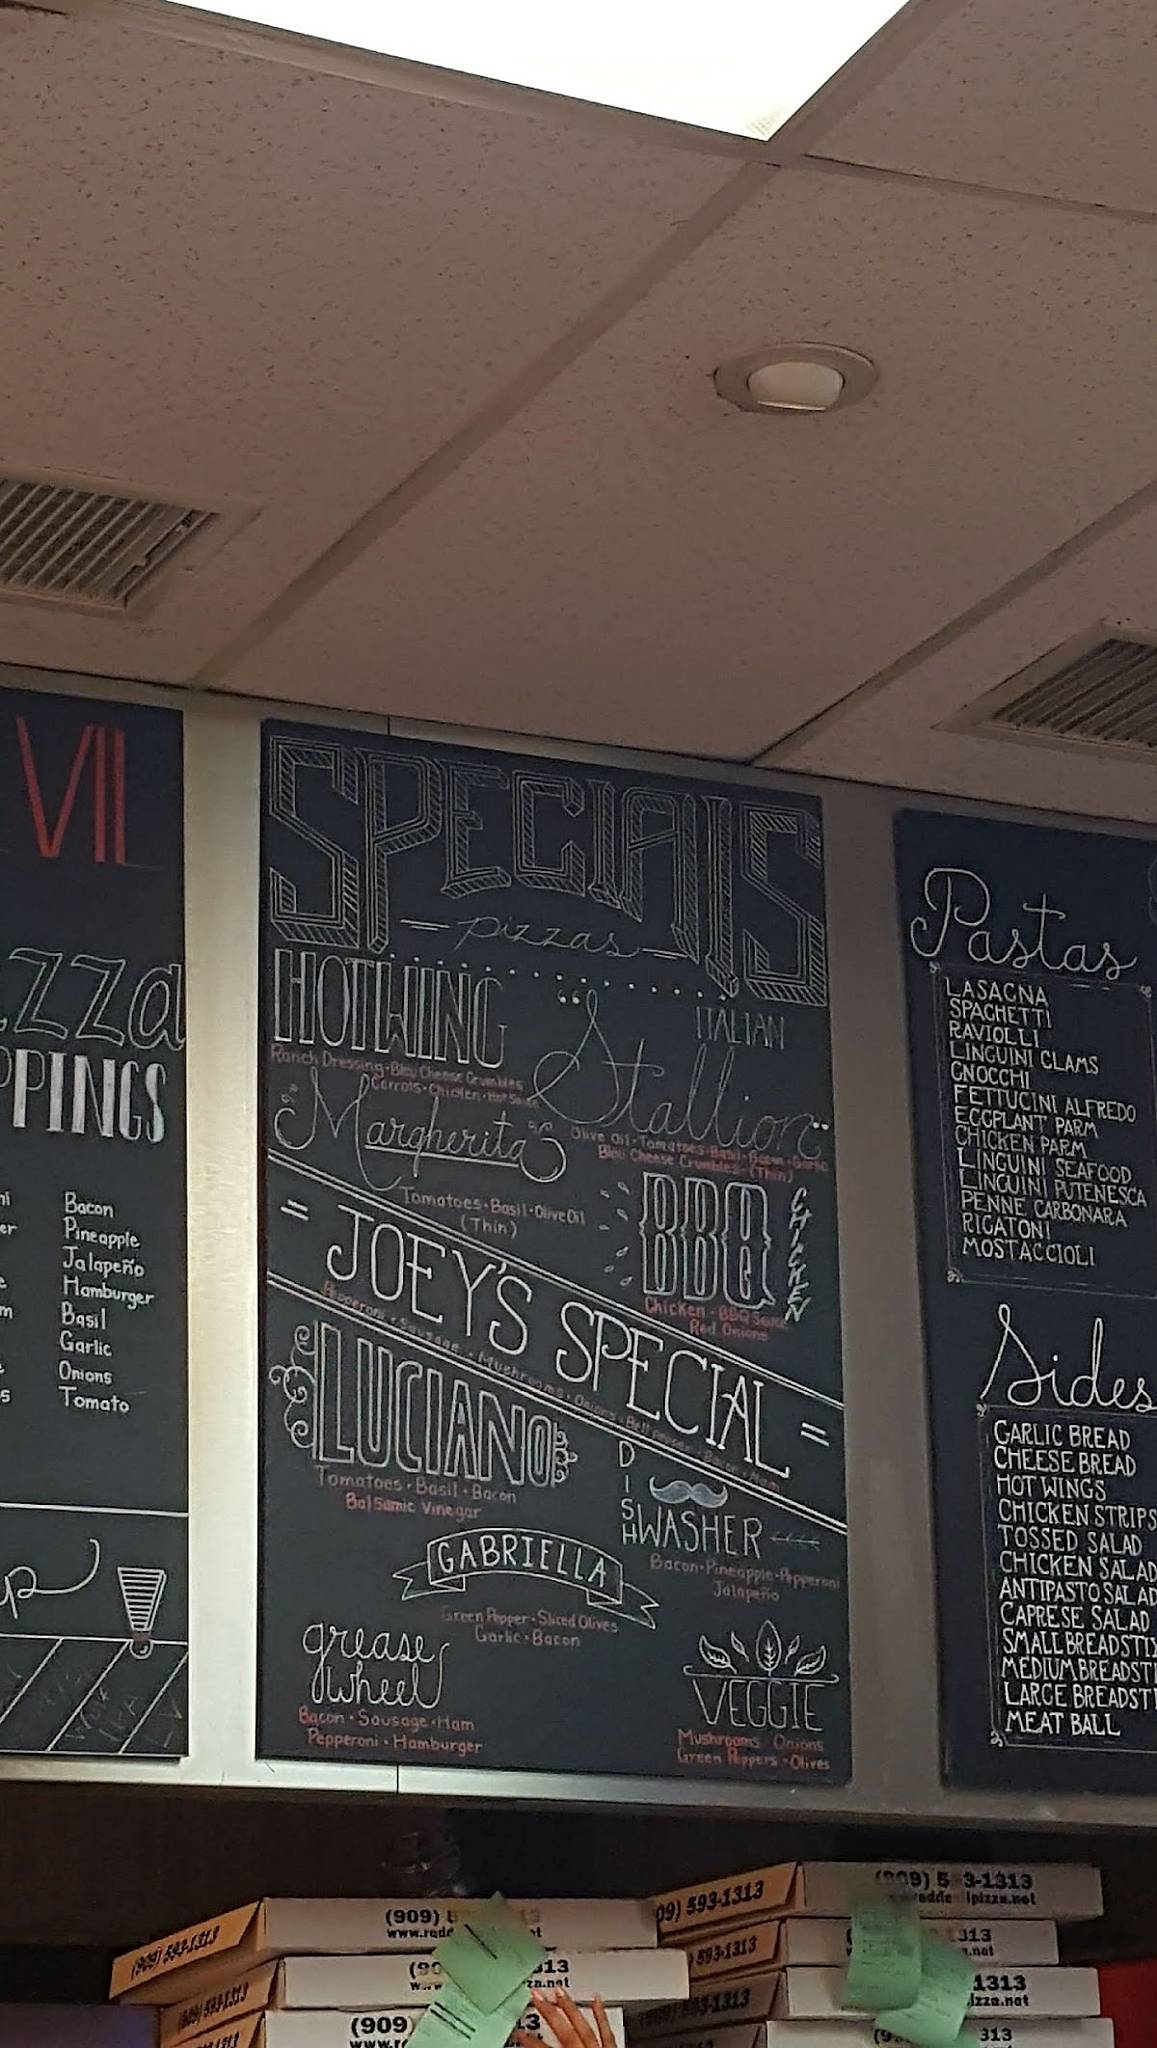 VII
zza
PPINGS
Bacon
Pineapple
Jalapeño
Hamburger
Basil
Garlic
Onions
Tomato
SPECIALS
pizzas
HOTWING
Ranch Dressing • Bleu Cheese Crumbles
Carrots • Chicken • Hot Sauce
ITALIAN
"Stallion"
Olive Oil • Tomatoes • Basil • Bacon • Garlic
Bleu Cheese Crumbles - (Thin)
Margherita
Tomatoes • Basil • Olive Oil
(Thin)
BBQ
CHICKEN
Chicken • BBQ Sauce
Red Onions
= JOEY'S SPECIAL =
Pepperoni • Sausage • Mushrooms • Onions • Bell Pepper • Bacon • Ham
LUCIANO
Tomatoes • Basil • Bacon
Balsamic Vinegar
DISH
WASHER
Bacon • Pineapple • Pepperoni
Jalapeño
GABRIELLA
Green Pepper • Sliced Olives
Garlic • Bacon
grease
wheel
Bacon • Sausage • Ham
Pepperoni • Hamburger
VEGGIE
Mushrooms Onions
Green Peppers • Olives
Pastas
LASAGNA
SPAGHETTI
RAVIOLLI
LINGUINI CLAMS
GNOCCHI
FETTUCINI ALFREDO
EGGPLANT PARM
CHICKEN PARM
LINGUINI SEAFOOD
LINGUINI PUTENESCA
PENNE CARBONARA
RIGATONI
MOSTACCIOLI
Sides
GARLIC BREAD
CHEESE BREAD
HOT WINGS
CHICKEN STRIPS
TOSSED SALAD
CHICKEN SALAD
ANTIPASTO SALAD
CAPRESE SALAD
SMALL BREADSTIX
MEDIUM BREADSTI
LARGE BREADSTI
MEAT BALL
(909) 593-1313
(909) 5 13
(909) 593-1313
(909) 5 3-1313